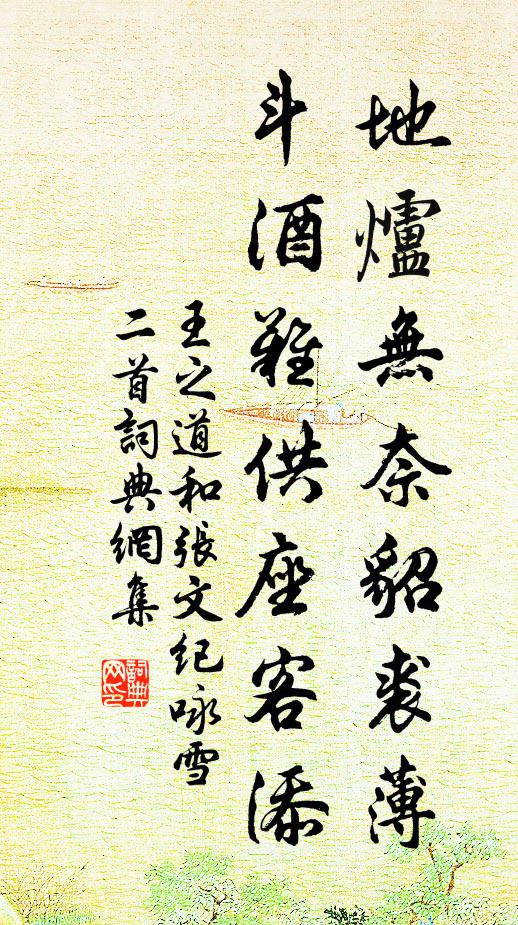 地爐無奈貂裘薄
斗酒難供座客添
王之道和張文紀咏雪
二首詞典網集
詞典
网印